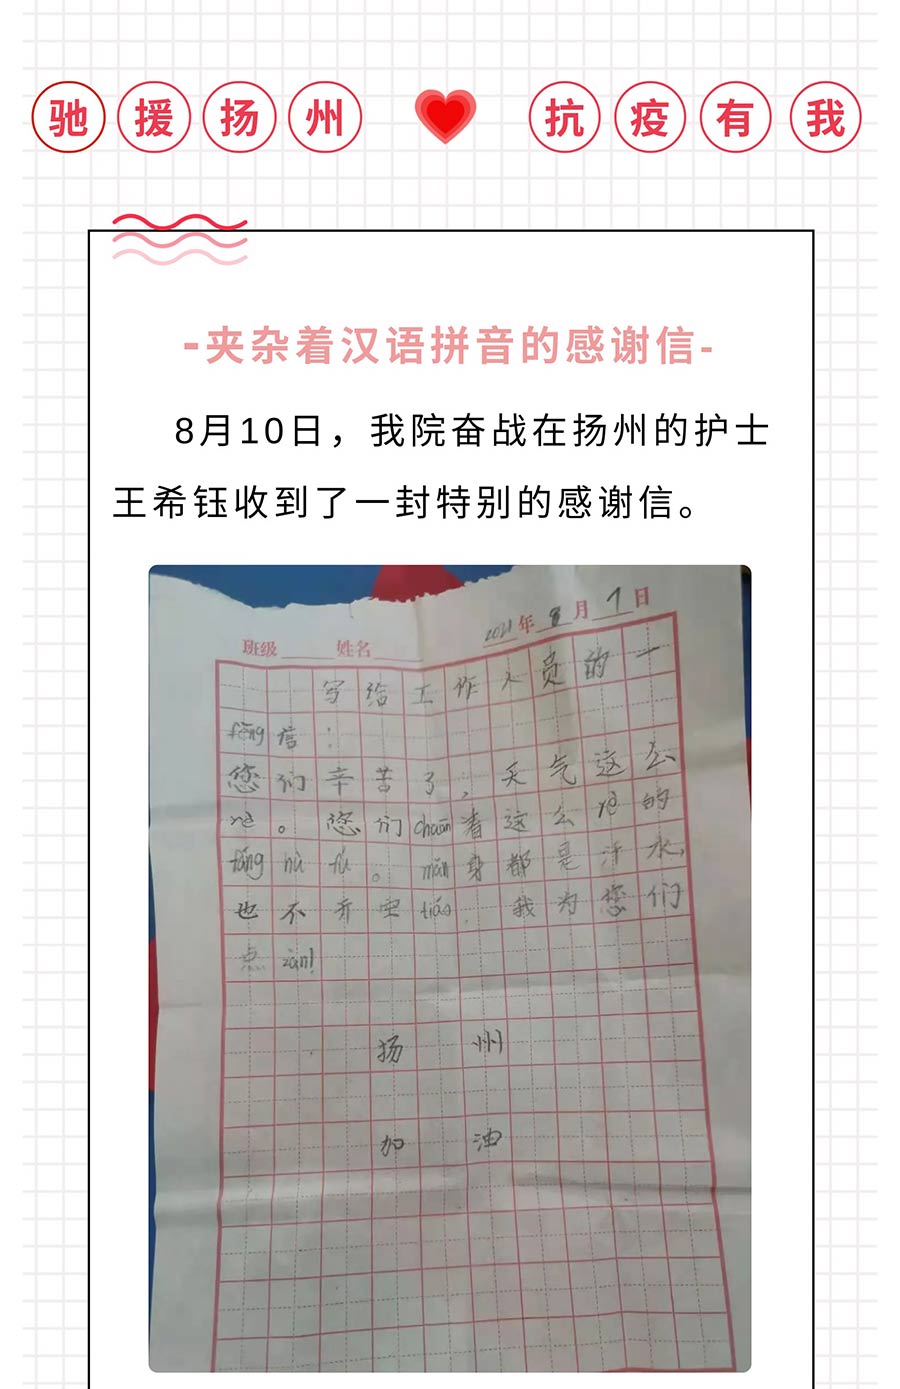 驰援扬州 抗疫有我
-夹杂着汉语拼音的感谢信-
8月10日，我院奋战在扬州的护士
王希钰收到了一封特别的感谢信。
2021年8月1日
班级 姓名
写给工作人员的一
fēng信：
您们辛苦了，天气这么
rè。您们chuān着这么rè的
fáng hù fú。mǎn身都是汗水，
也不开空tiáo，我为您们
点zàn!
扬州
加油